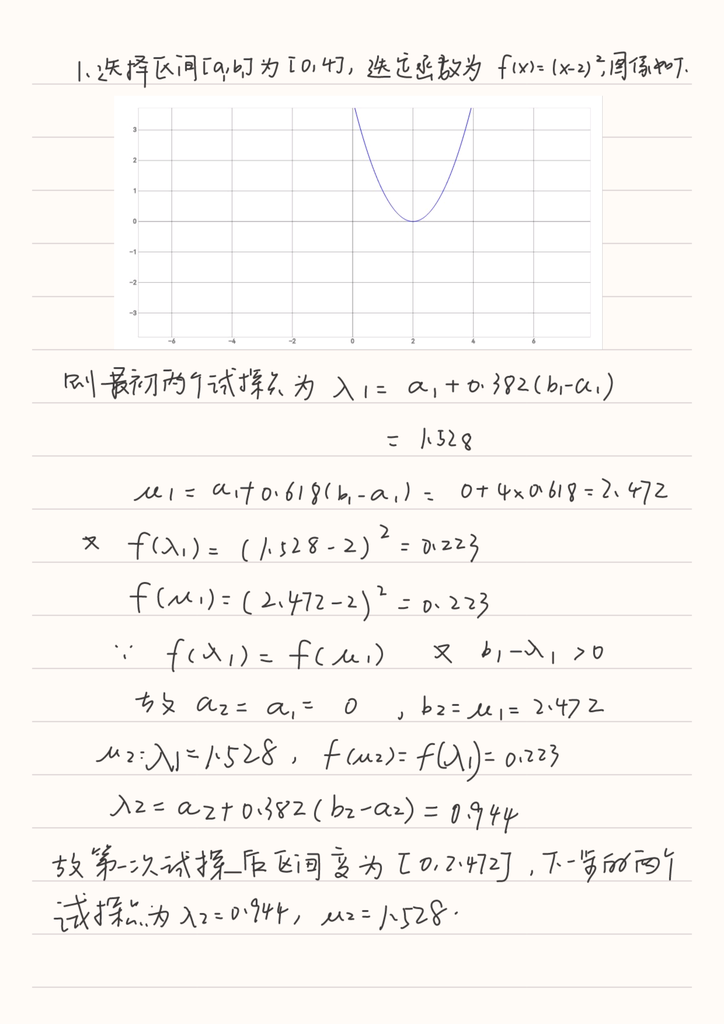 1.选择区间[a,b]为[0,4],选定函数为 f(x)=(x-2)²,图像如下.
3
2
1
0
-1
-2
-3
-6 -4 -2 0 2 4 6
则最初两个试探点为 λ1= a1+0.382(b1-a1)
= 1.528
μ1= a1+0.618(b1-a1)= 0+4×0.618=2.472
又 f(λ1)=(1.528-2)²=0.223
f(μ1)=(2.472-2)²=0.223
∵ f(λ1)=f(μ1) 又 b1-λ1>0
故 a2= a1= 0 , b2=μ1=2.472
μ2=λ1=1.528, f(μ2)=f(λ1)=0.223
λ2=a2+0.382(b2-a2)=0.944
故第一次试探后区间变为[0,2.472],下一步的两个
试探点为λ2=0.944, μ2=1.528.